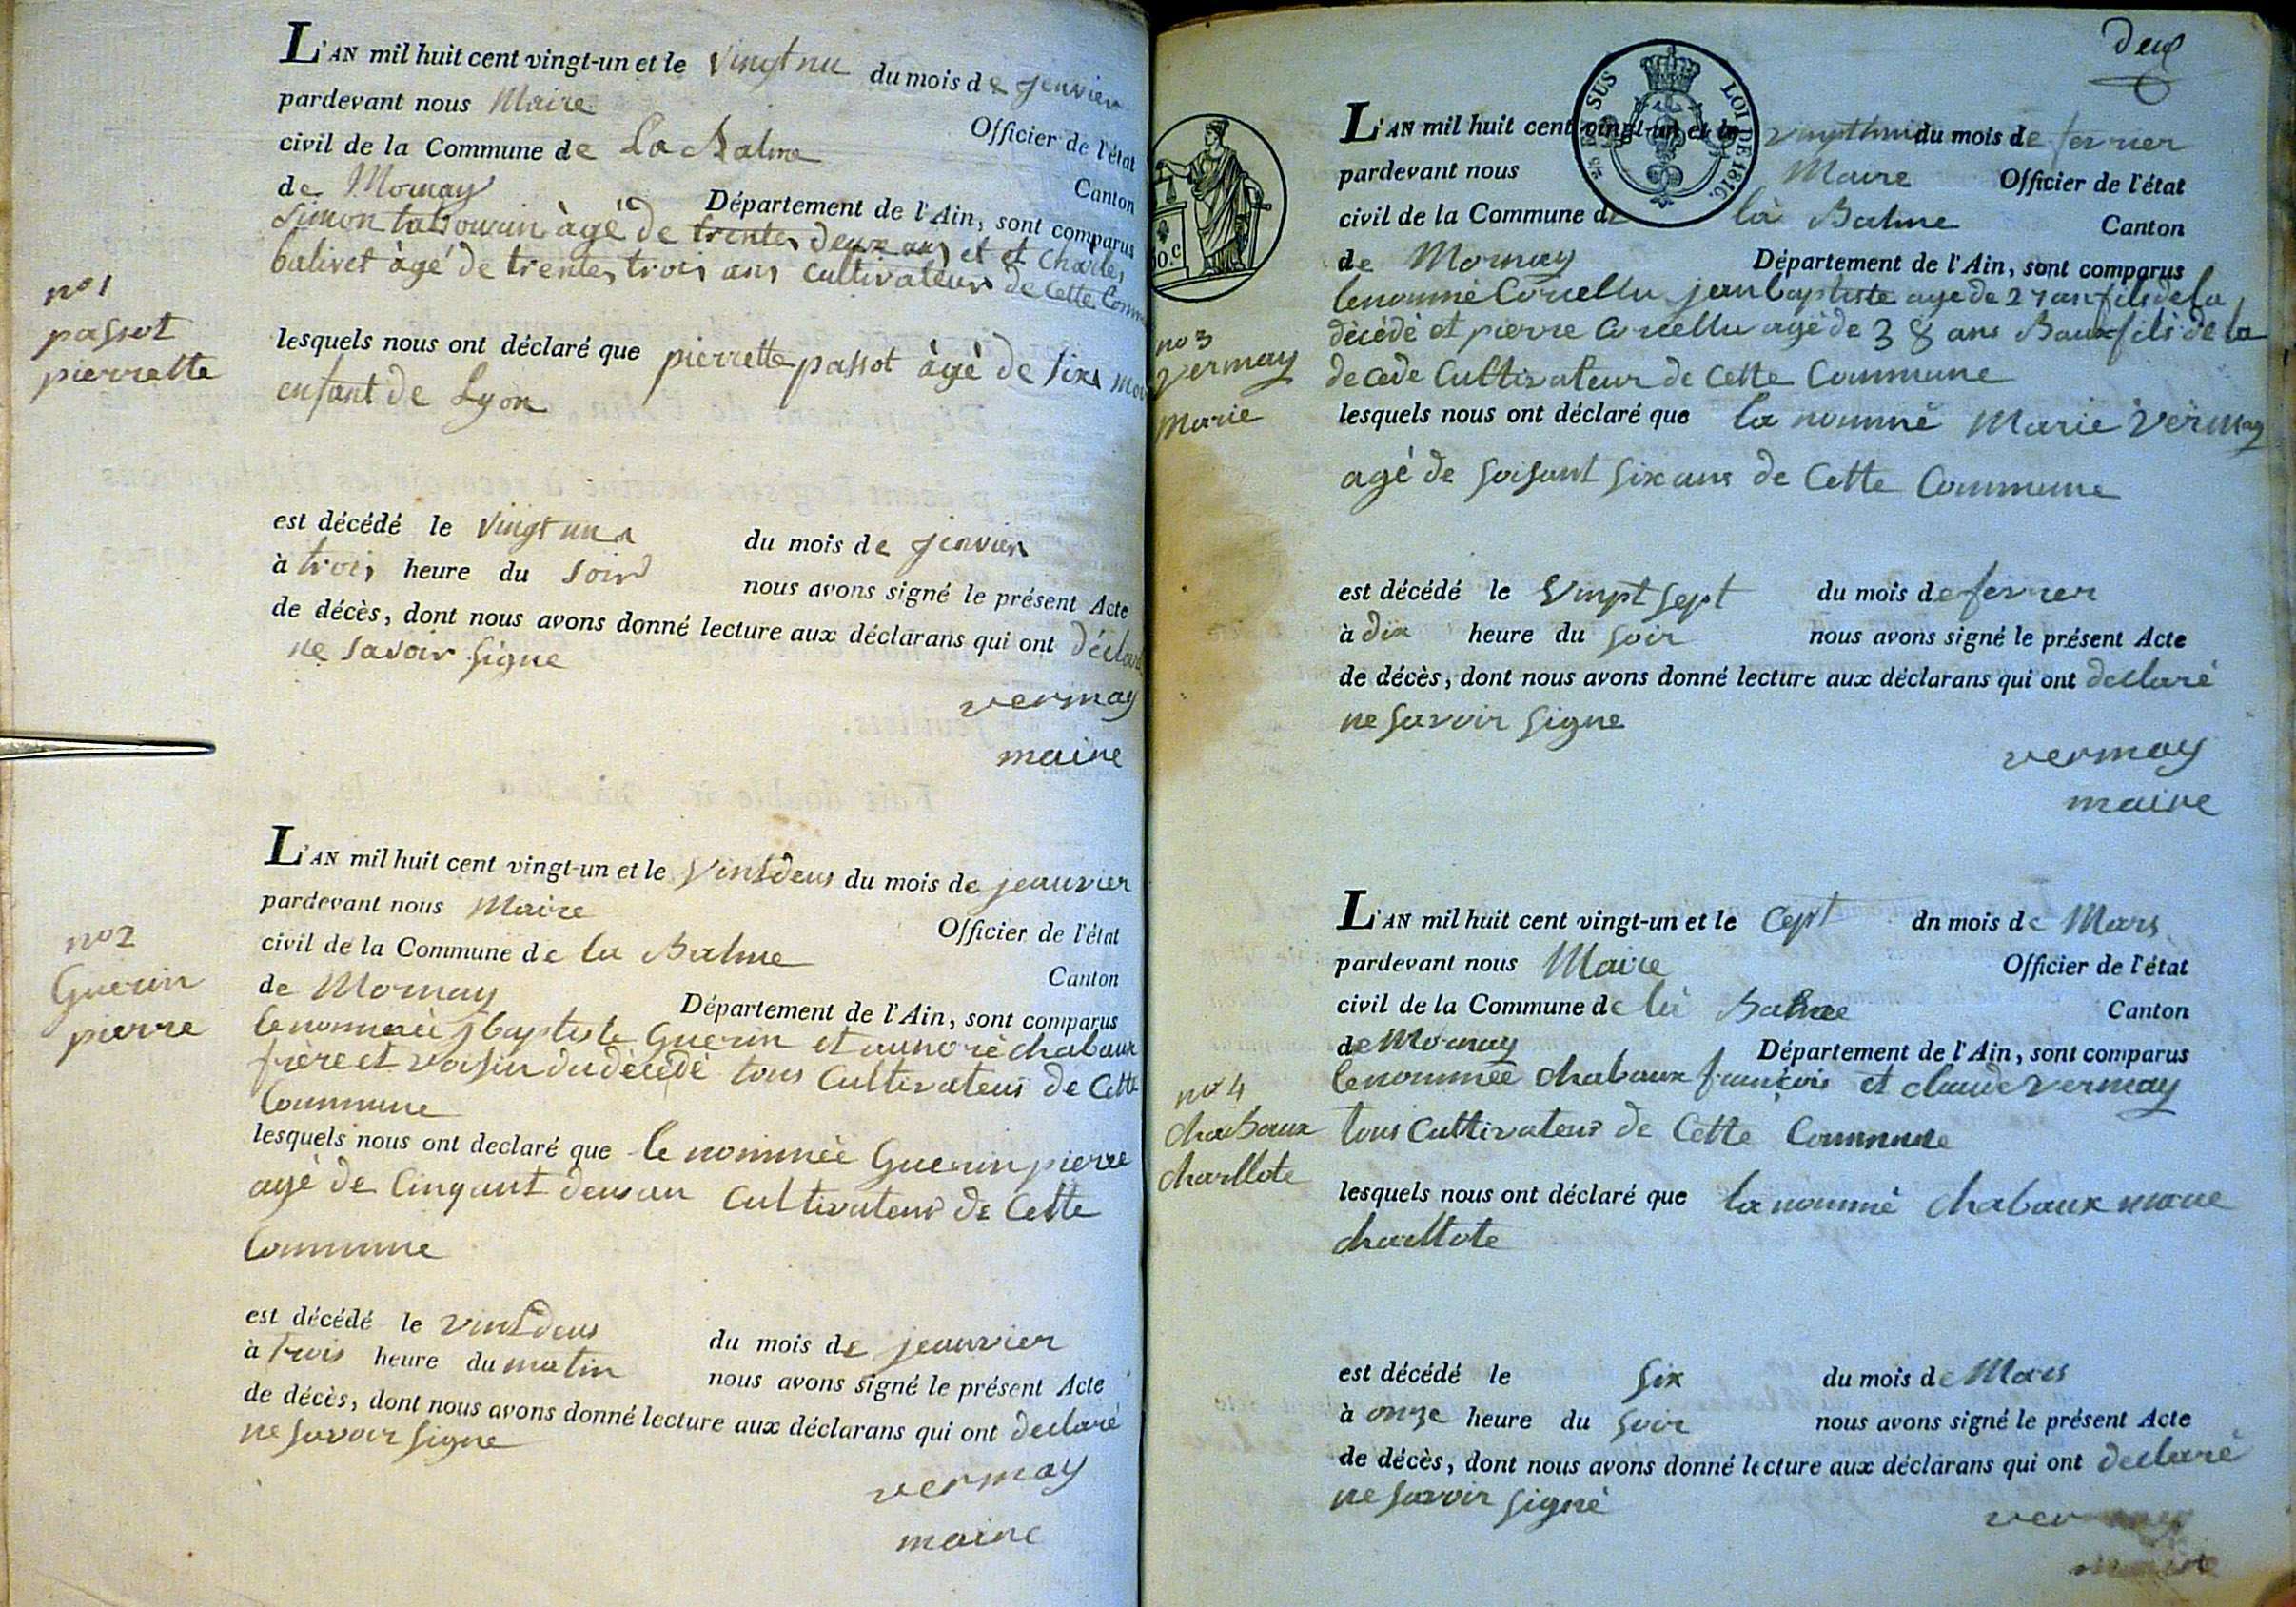 L'AN mil huit cent vingt-un et le vingt un du mois de jenvier
pardevant nous Maire Officier de l'état
civil de la Commune de La Balme Canton
de Mornay Département de l'Ain, sont comparus
Simon âgé de trentes deux ans et et Charles
balivet âgé de trentes trois ans cultivateurs de cette Comm
no 1
passot
pierrette
lesquels nous ont déclaré que pierrette passot âgè de sixs moi
enfant de Lyon
est décédé le vingt un du mois de jenvier
à trois heure du soir nous avons signé le présent Acte
de décès, dont nous avons donné lecture aux déclarans qui ont déclar
ne savoir signe
vermay
maire
L'AN mil huit cent vingt-un et le vintdeus du mois de jeanvier
pardevant nous Maire Officier de l'état
civil de la Commune de la Balme Canton
de Mornay Département de l'Ain, sont comparus
no 2
Guerin
pierre
lenommèe jbaptiste Guerin et aunoré chabaux
frère et voisin du dècèdè tous Cultivateurs de Cette
Commune
lesquels nous ont declaré que le nommèe Guerin pierre
agé de Cinquant deus an Cultivateur de Cette
Commune
est décédé le vintdeus du mois de jeanvier
à trois heure du matin nous avons signé le présent Acte
de décès, dont nous avons donné lecture aux déclarans qui ont declaré
ne savoir signe
vermay
maire
deux
RE SUS
LOI DE 1816.
L'AN mil huit cent vingt-un et le du mois de fevrier
pardevant nous Maire Officier de l'état
civil de la Commune de la Balme Canton
de Mornay Département de l'Ain, sont comparus
lenommè jean baptiste age de 27 an fils de la
décédé et pierre agé de 38 ans Baux fils de la
decede Cultivateur de Cette Commune
no 3
vermay
Marie
lesquels nous ont déclaré que la nommé Marie Vermay
agé de soisant six ans de Cette Commune
est décédé le Vinpt sept du mois de fevrier
à dix heure du soir nous avons signé le présent Acte
de décès, dont nous avons donné lecture aux déclarans qui ont declaré
ne savoir signe
vermay
maire
L'AN mil huit cent vingt-un et le Cept dn mois de Mars
pardevant nous Maire Officier de l'état
civil de la Commune de la Balme Canton
de Mornay Département de l'Ain, sont comparus
lenommée chabaux françois et claude vermay
tous Cultivateur de Cette Commune
no 4
chabaux
charllote
lesquels nous ont déclaré que la nommé chabaux marie
charllote
est décédé le six du mois de Mars
à onze heure du soir nous avons signé le présent Acte
de décès, dont nous avons donné lecture aux déclarans qui ont declaré
ne savoir signé
vermay
maire